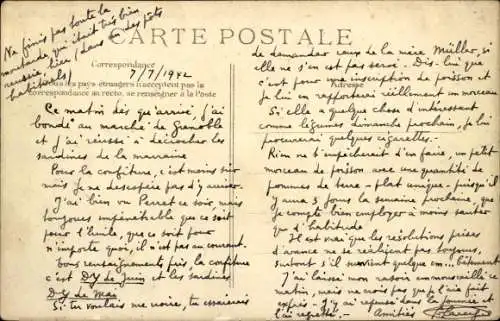 Ne finis pas toute la
moutarde qui était très bien
réussie, lire (dans des pots
habituels)
CARTE POSTALE
Correspondance
7/7/1942
Tous les pays étrangers n'acceptent pas la
correspondance au recto, se renseigner à la Poste
Adresse
Ce matin dès que arrivé, j'ai
bondé au marché de Grenoble
et j'ai réussi à décrocher les
sardines de la marraine
Pour la confiture, c'est moins sûr
mais je ne désespère pas d'y arriver.
J'ai bien vu Perret ce soir mais
toujours impénétrable que ce soit
pour l'huile, que ce soit pour
n'importe quoi, il n'est pas au courant.
Tous renseignements pris la confiture
c'est DY de Juin et les sardines
DY de Mai
Si tu voulais me croire, tu essaierais
de demander ceux de la mère Müller, si
elle ne s'en est pas servi. Dis-lui que
c'est pour une inscription de poisson et
je lui en rapporterai réellement un morceau
Si elle a quelque chose d'intéressant
comme légumes dimanche prochain, je lui
procurerai quelques cigarettes.
Rien ne t'empêcherait d'en faire, un petit
morceau de poisson avec une quantité de
pommes de terre - plat unique - puisqu'il
y aura 5 jours la semaine prochaine, que
je compte bien employer à moins sauter
que d'habitude.
Il est vrai que les résolutions prises
d'avance ne se réalisent pas toujours,
surtout s'il survient quelque embêtement
J'ai laissé mon rasoir emmouscaillé ce
matin, mais ne crois pas que je l'ai fait
exprès - J'y ai repensé dans la journée et
l'ai regretté. - Amitiés